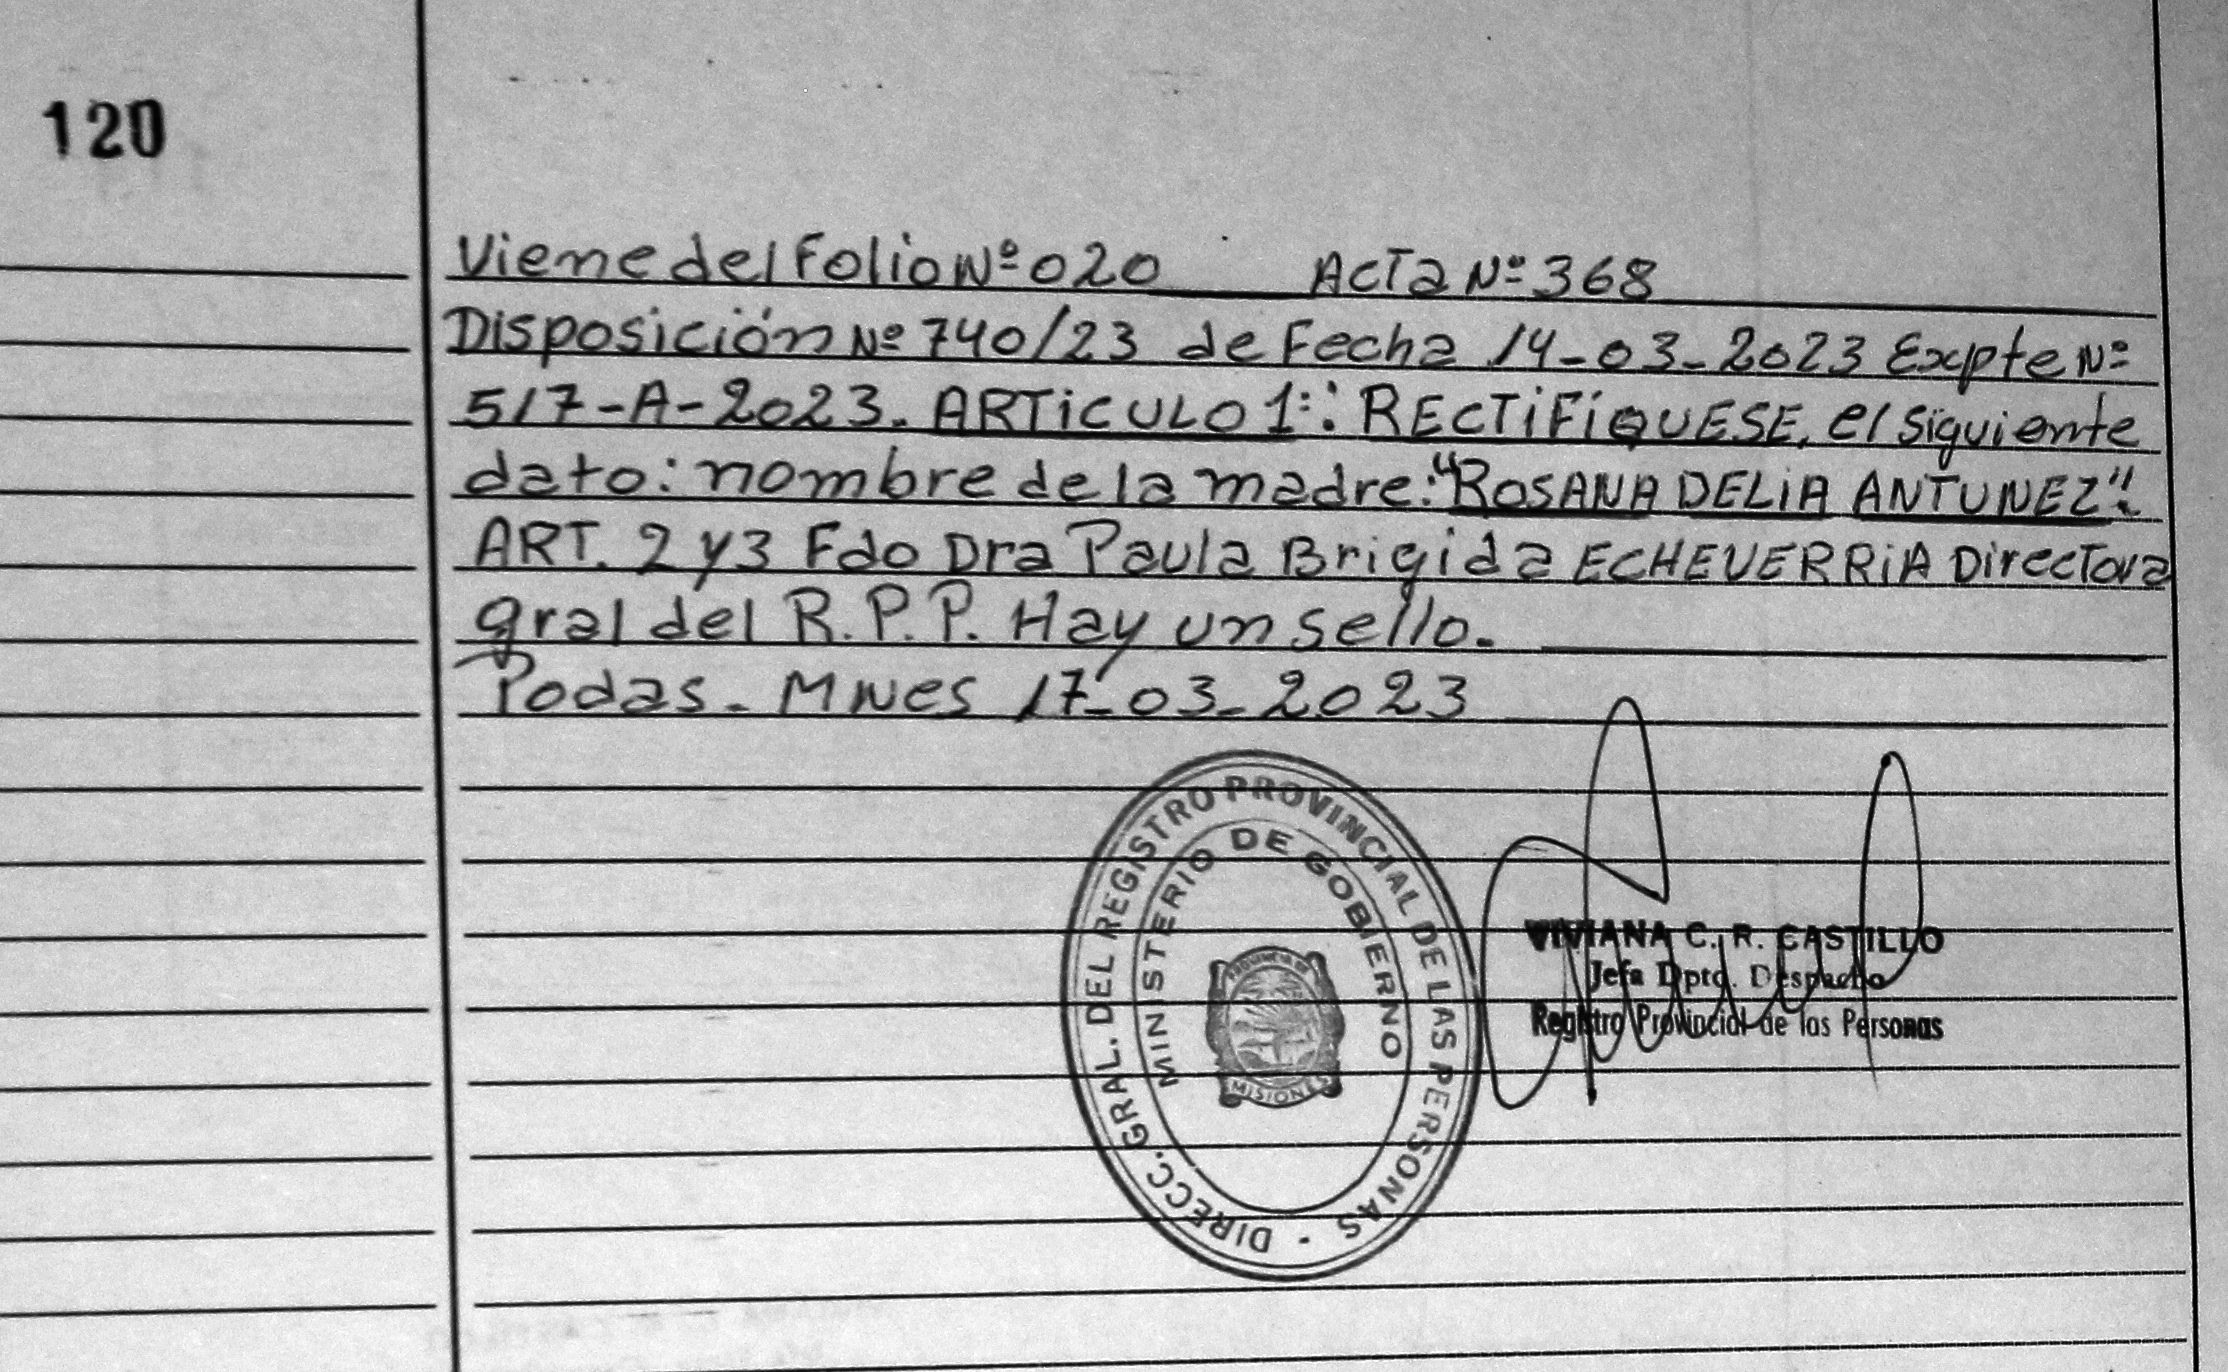 120
Viene del Folio Nº 020 Acta Nº 368
Disposición Nº 740/23 de Fecha 14-03-2023 Expte Nº
517-A-2023. ARTICULO 1º: RECTIFIQUESE, el siguiente
dato: nombre de la madre: "ROSANA DELIA ANTUNEZ".
ART. 2 y 3 Fdo Dra Paula Brigida ECHEVERRIA Directora
gral del R.P.P. Hay un sello.
Podas. Mnes 17-03-2023
DIRECC. GRAL. DEL REGISTRO PROVINCIAL DE LAS PERSONAS -
MINISTERIO DE GOBIERNO
PROVINCIA DE
MISIONES
VIVIANA C. R. CASTILLO
Jefa Dpto. Despacho
Registro Provincial de las Personas